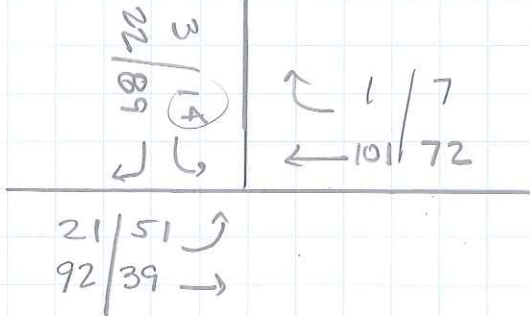 3 14
22 89
1 7
101 72
21 51
92 39